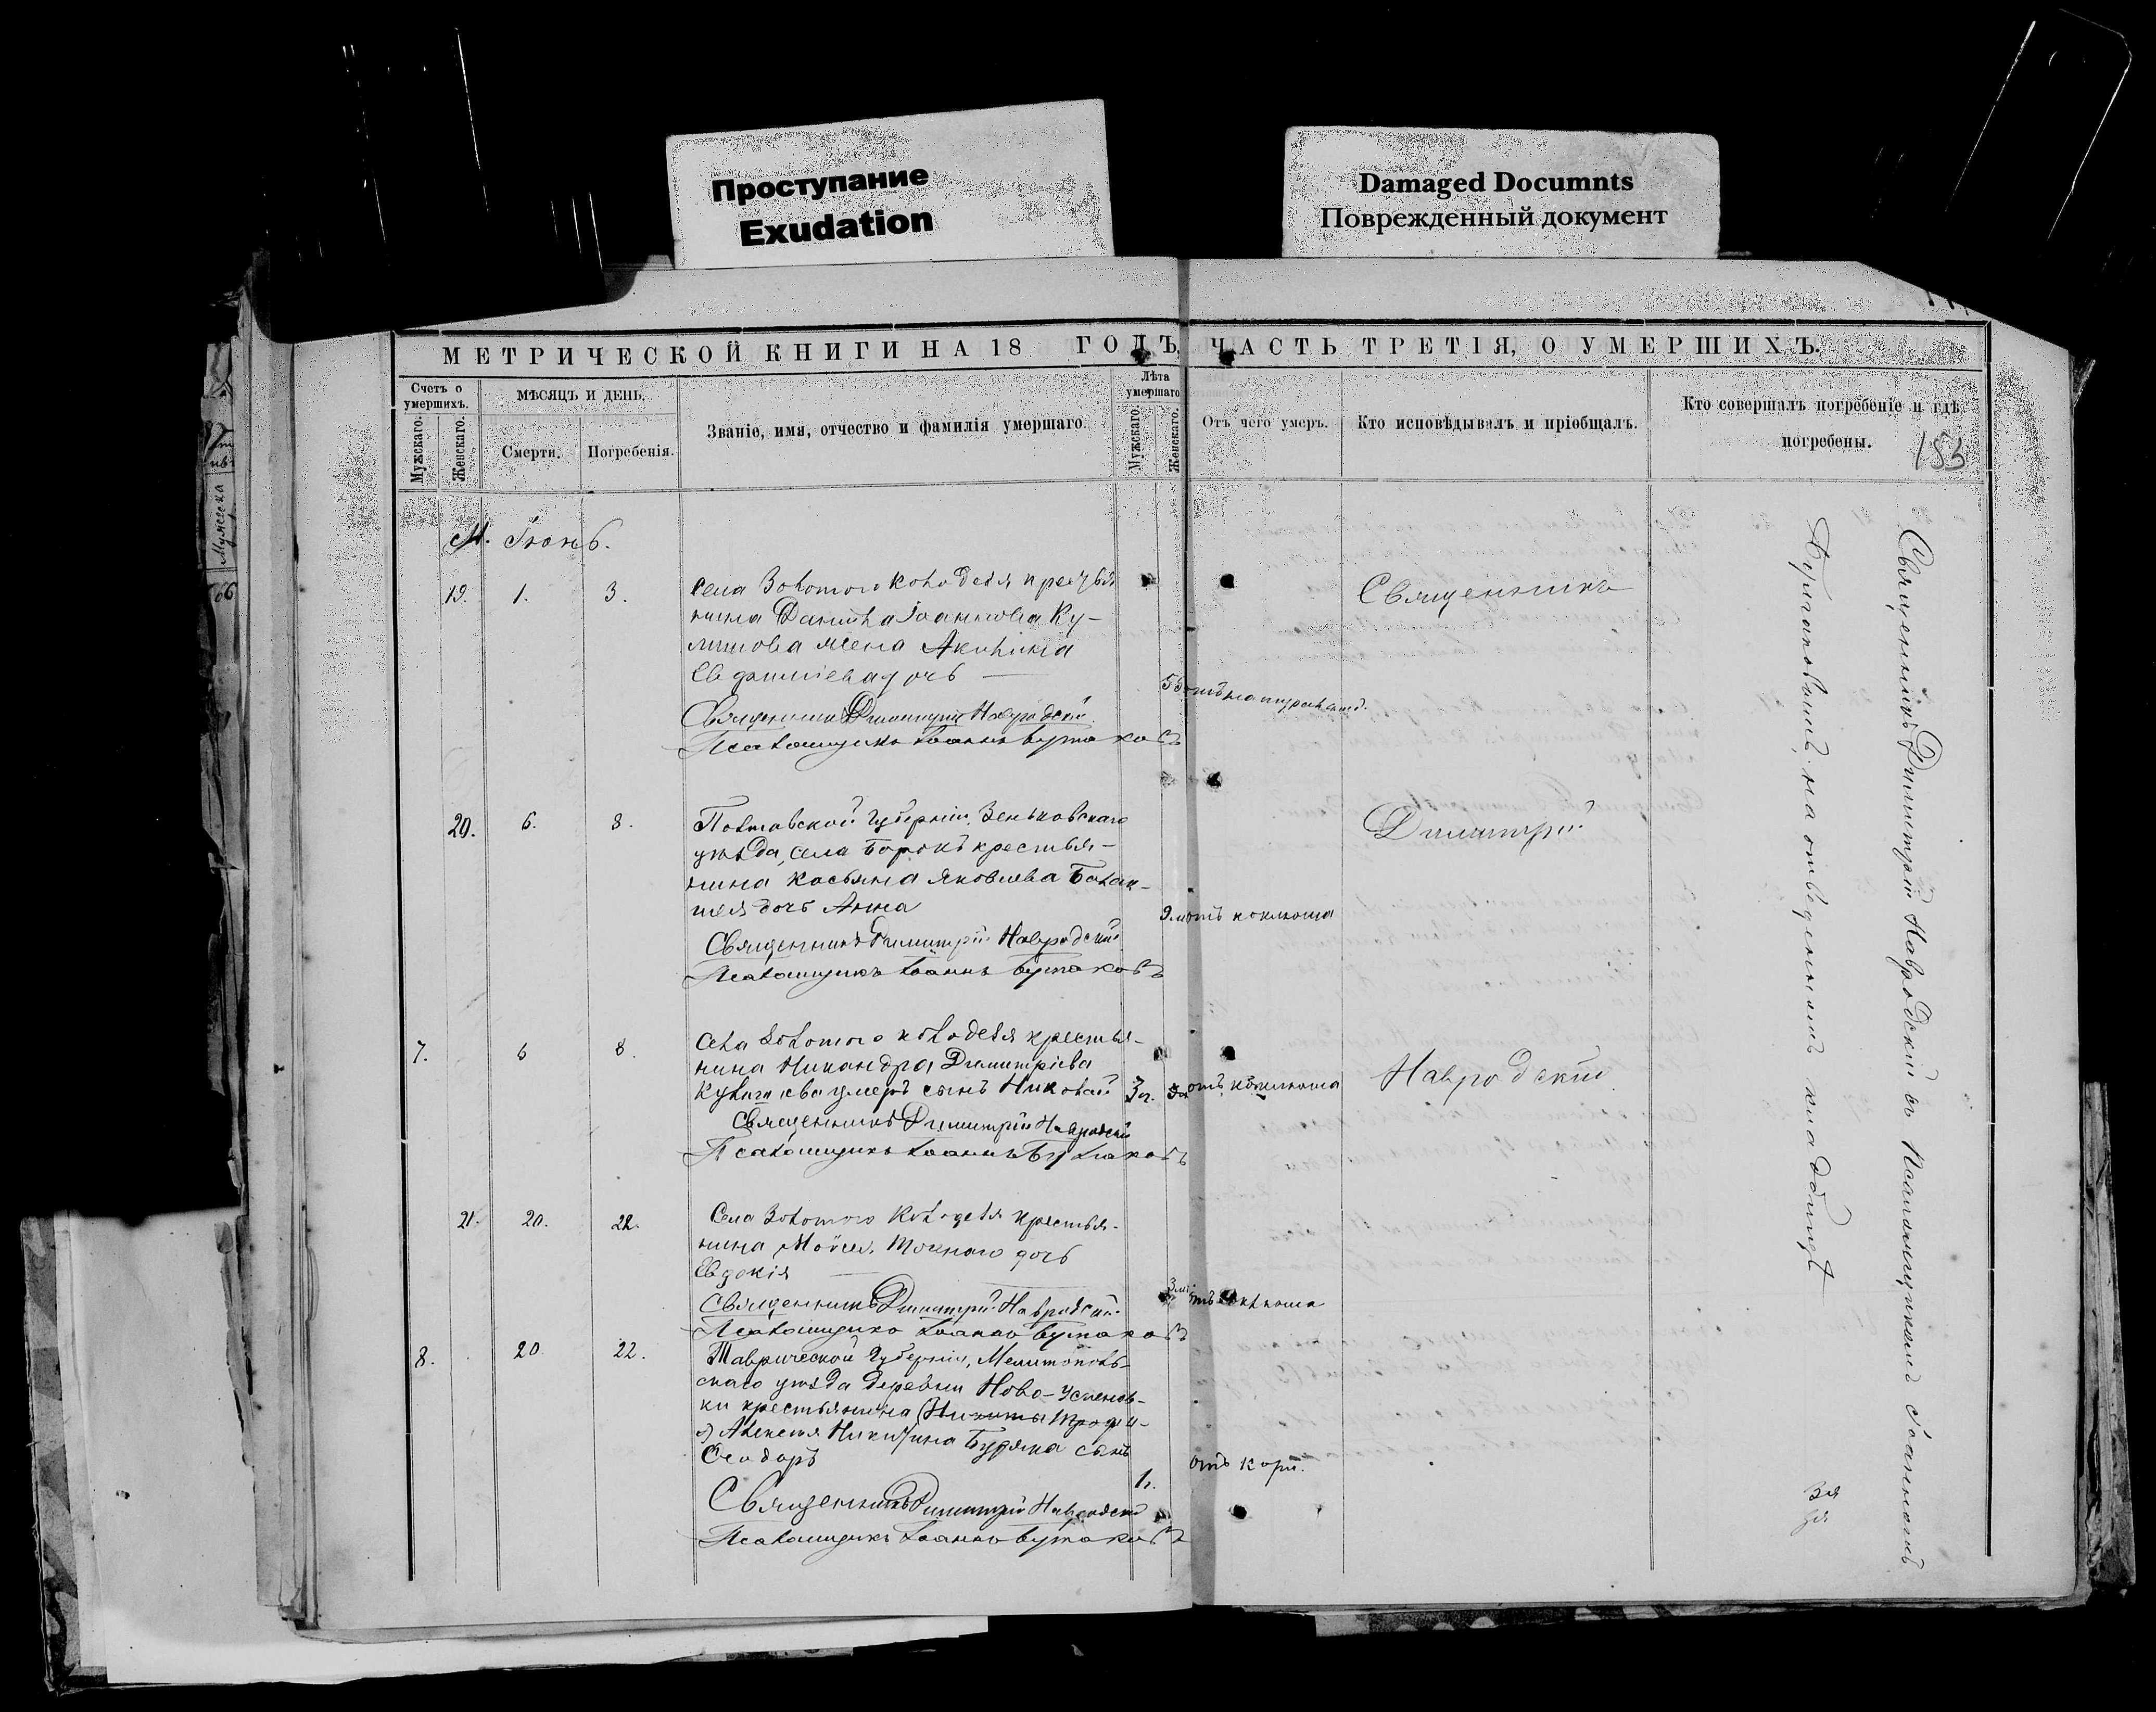 Проступание
Exudation
Damaged Documnts
Поврежденный документ
МЕТРИЧЕСКОЙ КНИГИ НА 18 ГОДЪ, ЧАСТЬ ТРЕТІЯ, О УМЕРШИХЪ.
Счетъ о умершихъ.
Мужскаго.
Женскаго.
МѢСЯЦЪ И ДЕНЬ.
Смерти.
Погребенія.
Званіе, имя, отчество и фамилія умершаго.
Лѣта умершаго
Мужскаго.
Женскаго.
Отъ чего умеръ.
Кто исповѣдывалъ и пріобщалъ.
Кто совершалъ погребеніе и гдѣ погребены.
153
М. Іюнь.
19. 1. 3.
Села Золотого Колодезя кресть
нина Даніила Іоаннова Ку-
жена Акилина
дочь
Священникъ Димитрій Навродскій
Псаломщикъ Іоаннъ Бутаковъ
Священникъ
20. 6. 8.
Полтавской губерніи, Зеньковскаго
уѣзда, села Борокъ крестья-
нина Касьяна Яковлева
дочь Анна
9 м. отъ коклюша
Священникъ Димитрій Навродскій
Псаломщикъ Іоаннъ Бутаковъ
Димитрій
7. 6 8.
Села Золотого колодезя крестья-
нина Никандра Димитріева
умеръ сынъ Николай
3 г. отъ коклюша
Священникъ Димитрій Навродскій
Псаломщикъ Іоаннъ Бутаковъ
Навродскій
21. 20. 22.
Села Золотого Колодезя крестья-
нина дочь
Евдокія
отъ коклюша
Священникъ Димитрій Навродскій
Псаломщикъ Іоаннъ Бутаковъ
8. 20 22.
Таврической губерніи, Мелитополь-
скаго уѣзда деревни Ново-Успенов-
ки крестьянина (Никиты
Алексѣя Никитина Будяка сынъ
Ѳеодоръ
1 г.
отъ кори.
Священникъ Димитрій Навродскій
Псаломщикъ Іоаннъ Бутаковъ
Священникъ Димитрій Навродскій съ Псаломщикомъ Іоанномъ
Бутаковымъ на отведенномъ кладбищѣ